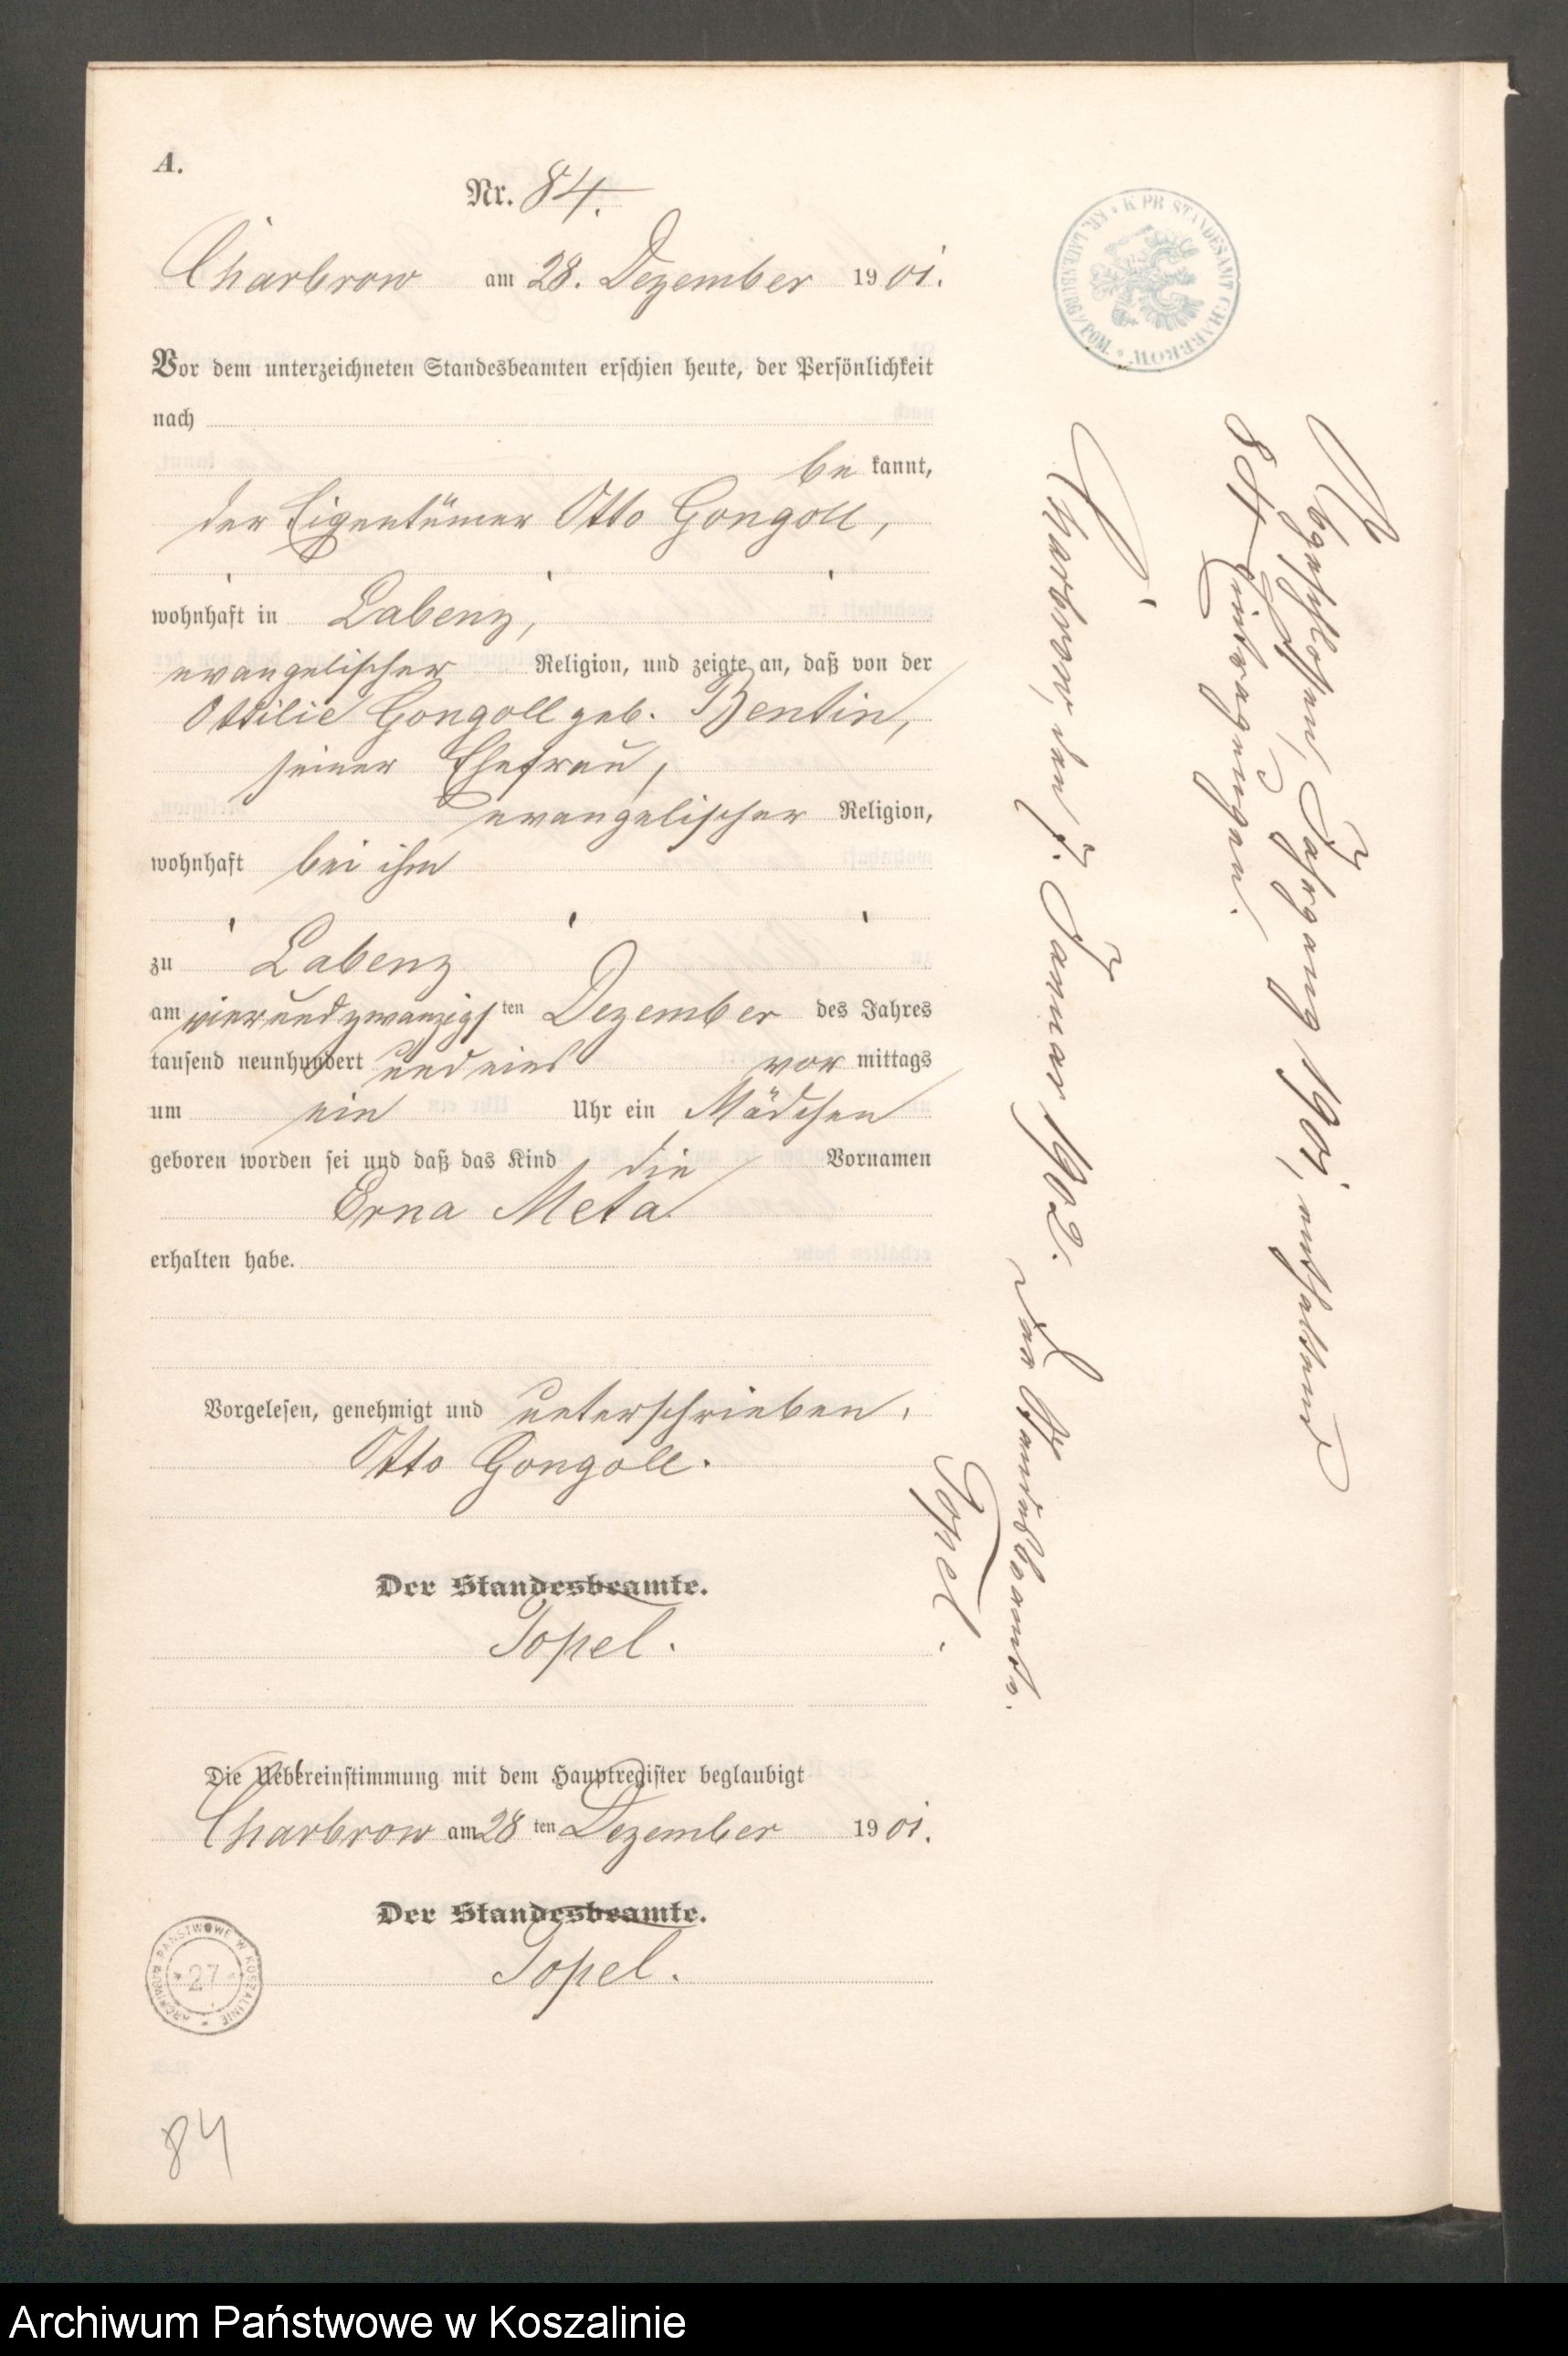 A.
Nr. 84.
Charbrow am 28. Dezember 1901.
Vor dem unterzeichneten Standesbeamten erschien heute, der Persönlichkeit
nach
be kannt,
der Eigentümer Otto Gongoll,
wohnhaft in Labenz,
evangelischer Religion, und zeigte an, daß von der
Ottilie Gongoll geb. Bentin,
seiner Ehefrau,
evangelischer Religion,
wohnhaft bei ihm
zu Labenz
am vierundzwanzigsten Dezember des Jahres
tausend neunhundert und eins vor mittags
um ein Uhr ein Mädchen
geboren worden sei und daß das Kind die Vornamen
Erna Meta
erhalten habe.
Vorgelesen, genehmigt und unterschrieben.
Otto Gongoll.
Der Standesbeamte.
Topel.
Die Uebereinstimmung mit dem Hauptregister beglaubigt
Charbrow am 28ten Dezember 1901.
Der Standesbeamte.
Topel.
ARCHIWUM PAŃSTWOWE W KOSZALINIE
* 27 *
84
K. PR. STANDESAMT CHARBROW
Abgeschlossen, Jahrgang 1901, enthaltend
84 Eintragungen.
Charbrow, den 7. Januar 1902.
Der Standesbeamte.
Topel.
Archiwum Państwowe w Koszalinie